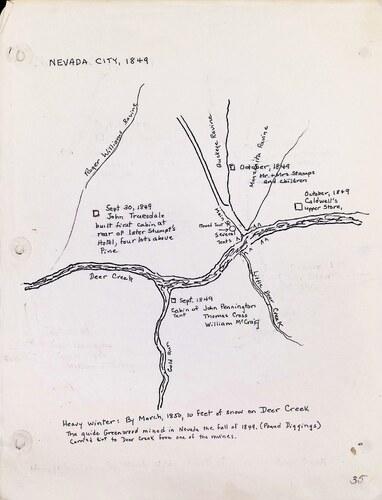 NEVADA CITY, 1849
Roger Williams Ravine
Buckeye Ravine
Manzanita Ravine
October, 1849
Mr. & Mrs. Stamps
and children
October, 1849
Caldwell's
Upper Store,
Sept 20, 1849
John Truesdale
built first cabin at
rear of later Stumpf's
Hotel, four lots above
Pine
Main
Round Tent
Several
Tents
Deer Creek
Little Deer Creek
Sept. 1849
Cabin of John Pennington
Tent Thomas Cross
William McCraig
Gold Run
Heavy Winter: By March, 1850, 10 feet of snow on Deer Creek
The guide Greenwood mined in Nevada the fall of 1849. (Pound Diggings)
Carried dirt to Deer Creek from one of the ravines.
35